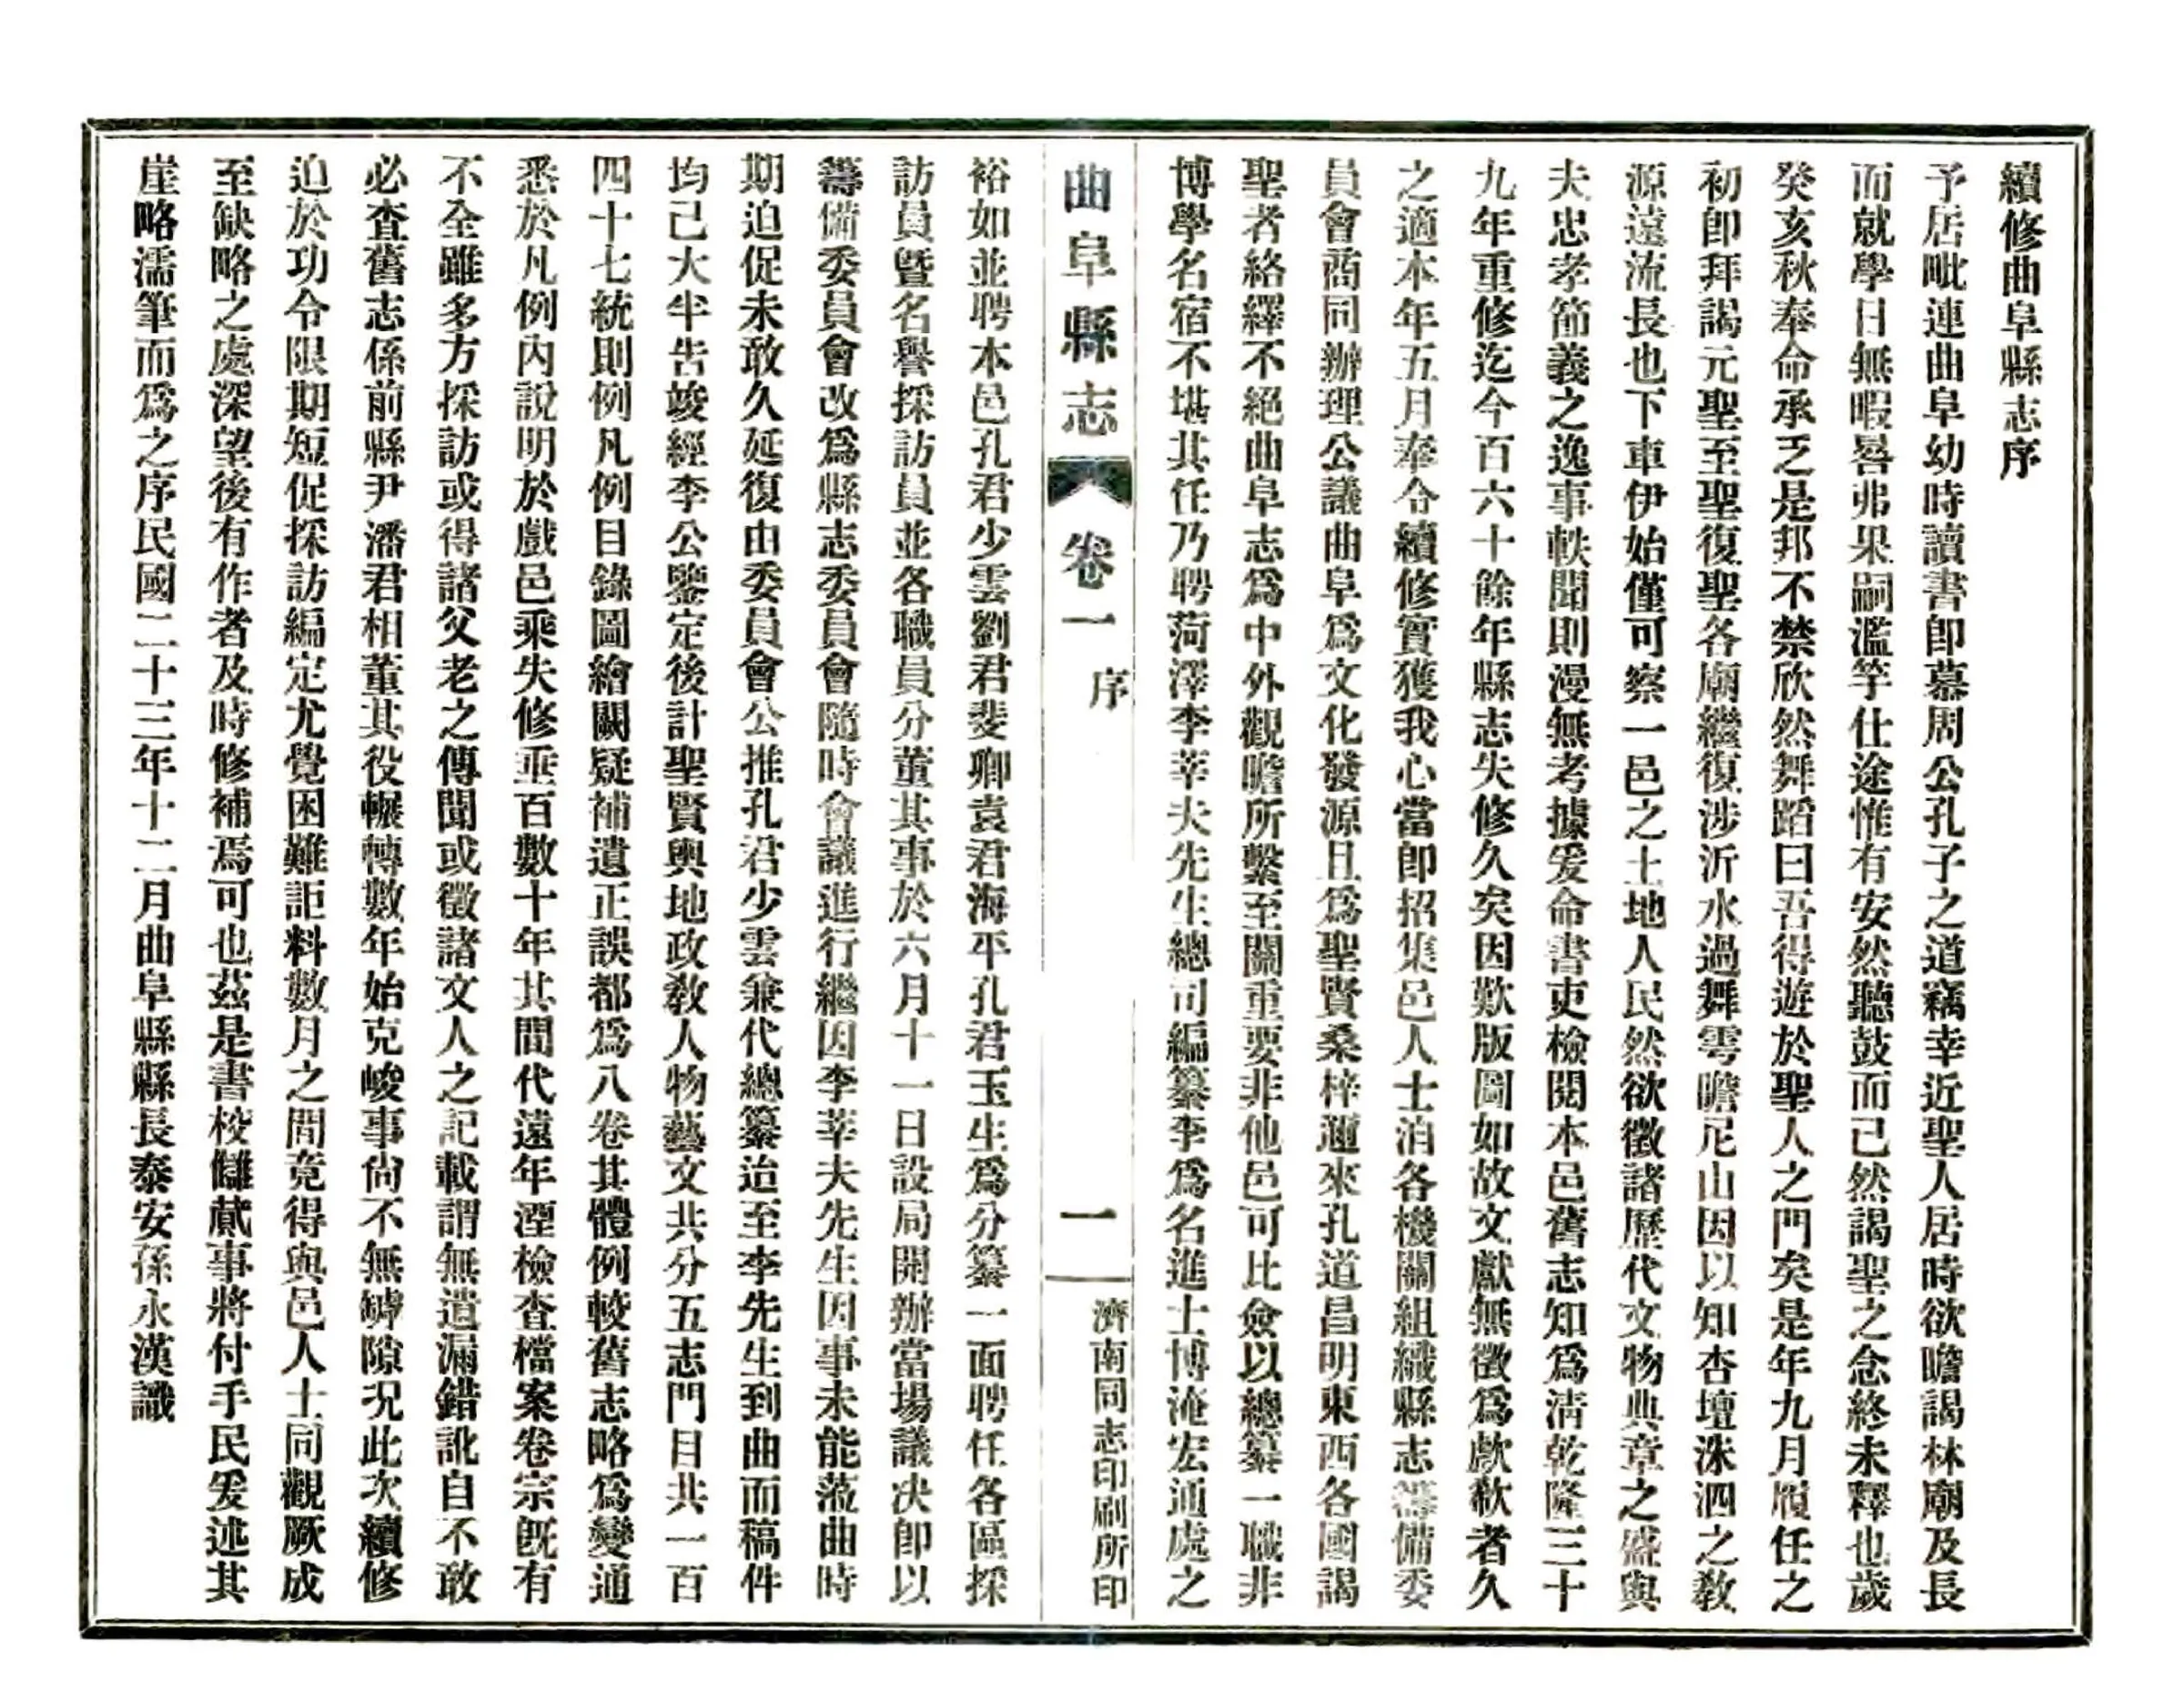 續修曲阜縣志序
予居毗連曲阜幼時讀書卽慕周公孔子之道竊幸近聖人居時欲瞻謁林廟及長
而就學日無暇晷弗果嗣濫竽仕途惟有安然聽鼓而已然謁聖之念終未釋也歲
癸亥秋奉命承乏是邦不禁欣然舞蹈曰吾得遊於聖人之門矣是年九月履任之
初卽拜謁元聖至聖復聖各廟繼復涉沂水過舞雩瞻尼山因以知杏壇洙泗之敎
源遠流長也下車伊始僅可察一邑之土地人民然欲徵諸歷代文物典章之盛與
夫忠孝節義之逸事軼聞則漫無考據爰命書吏檢閱本邑舊志知爲淸乾隆三十
九年重修迄今百六十餘年縣志失修久矣因歎版圖如故文獻無徵爲歔欷者久
之適本年五月奉令續修實獲我心當卽招集邑人士洎各機關組織縣志籌備委
員會商同辦理公議曲阜爲文化發源且爲聖賢桑梓邇來孔道昌明東西各國謁
聖者絡繹不絕曲阜志爲中外觀瞻所繫至關重要非他邑可比僉以總纂一職非
博學名宿不堪其任乃聘菏澤李莘夫先生總司編纂李爲名進士博淹宏通處之
曲阜縣志 卷一 序 一 濟南同志印刷所印
裕如並聘本邑孔君少雲劉君斐卿袁君海平孔君玉生爲分纂一面聘任各區採
訪員曁名譽採訪員並各職員分董其事於六月十一日設局開辦當場議决卽以
籌備委員會改爲縣志委員會隨時會議進行繼因李莘夫先生因事未能蒞曲時
期迫促未敢久延復由委員會公推孔君少雲兼代總纂迨至李先生到曲而稿件
均已大半告竣經李公鑒定後計聖賢輿地政敎人物藝文共分五志門目共一百
四十七統則例凡例目錄圖繪闕疑補遺正誤都爲八卷其體例較舊志略爲變通
悉於凡例內說明於戲邑乘失修垂百數十年其間代遠年湮檢查檔案卷宗旣有
不全雖多方採訪或得諸父老之傳聞或徵諸文人之記載謂無遺漏錯訛自不敢
必查舊志係前縣尹潘君相董其役輾轉數年始克峻事尙不無罅隙况此次續修
迫於功令限期短促採訪編定尤覺困難詎料數月之間竟得與邑人士同觀厥成
至缺略之處深望後有作者及時修補焉可也茲是書校讎蕆事將付手民爰述其
崖略濡筆而爲之序民國二十三年十二月曲阜縣縣長泰安孫永漢識